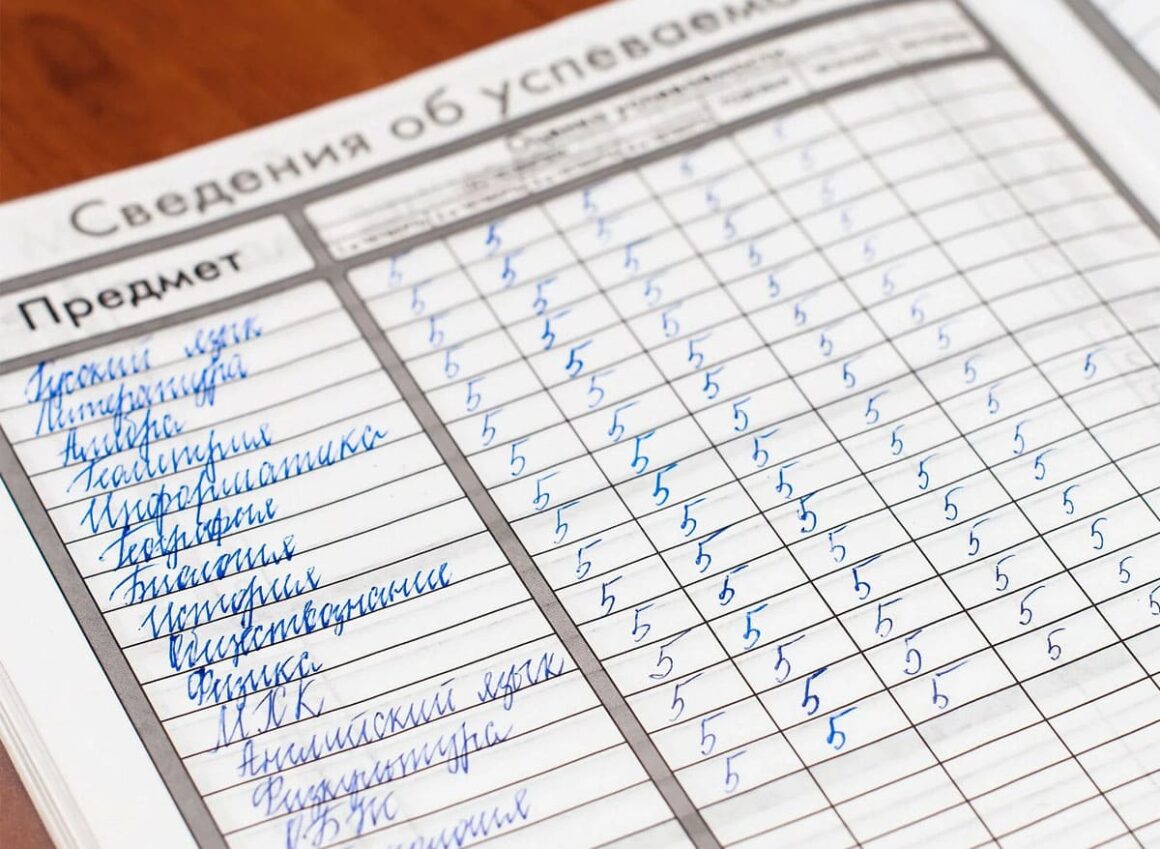 Сведения об успеваемо
Оценка успеваемости
Предмет
Русский язык 5 5 5 5 5
Литература 5 5 5 5 5
Алгебра 5 5 5 5 5
Геометрия 5 5 5 5 5
Информатика 5 5 5 5 5
География 5 5 5 5 5
Биология 5 5 5 5 5
История 5 5 5 5 5
Обществознание 5 5 5 5 5
Физика 5 5 5 5 5 5
МХК 5 5 5 5 5
Английский язык 5 5 5 5 5
Физкультура 5 5 5 5 5
ОБЖ 5 5 5 5 5
ология 5 5 5 5 5
5 5 5 5 5